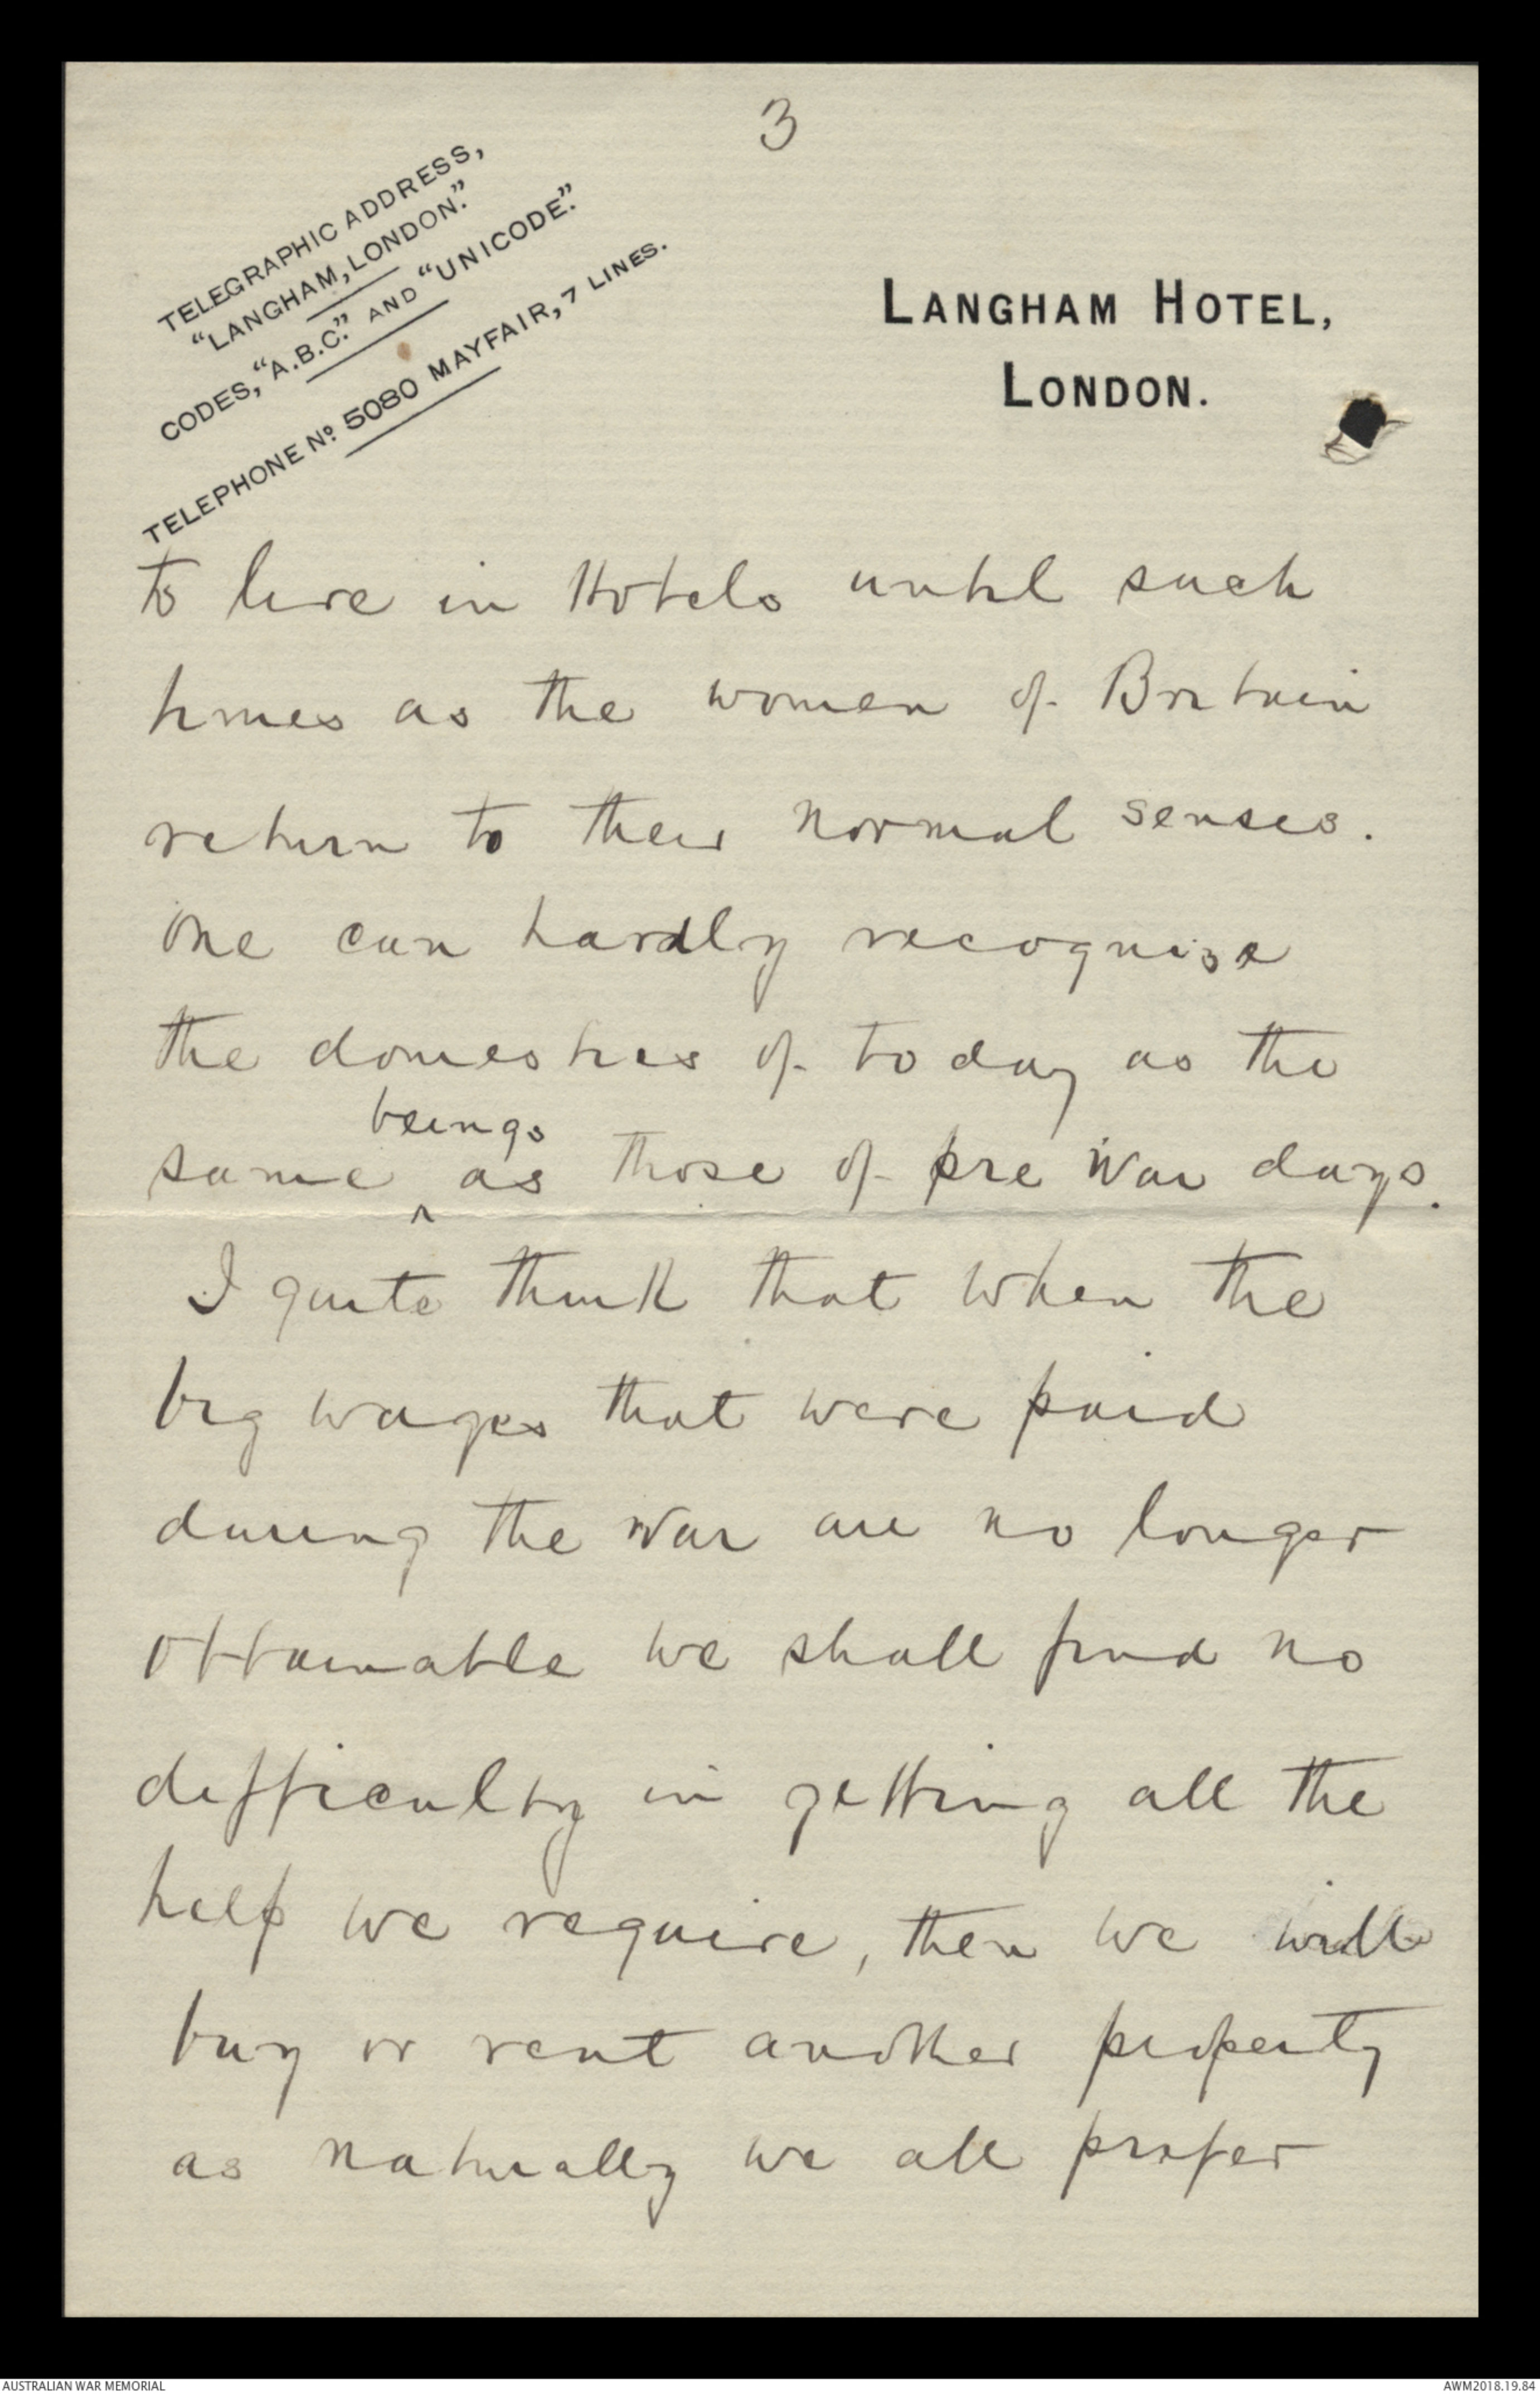 3
TELEGRAPHIC ADDRESS,
"LANGHAM, LONDON."
CODES, "A.B.C." AND "UNICODE".
TELEPHONE Nº 5080 MAYFAIR, 7 LINES.
LANGHAM HOTEL,
LONDON.
to live in Hotels until such
times as the women of Britain
return to their normal senses.
One can hardly recognise
the domestics of to day as the
beings
same ^ as those of pre War days.
I quite think that when the
big wages that were paid
during the War are no longer
ottainable we shall find no
difficulty in getting all the
help we require, then we will
buy or rent another property
as naturally we all prefer
AUSTRALIAN WAR MEMORIAL
AWM2018.19.84